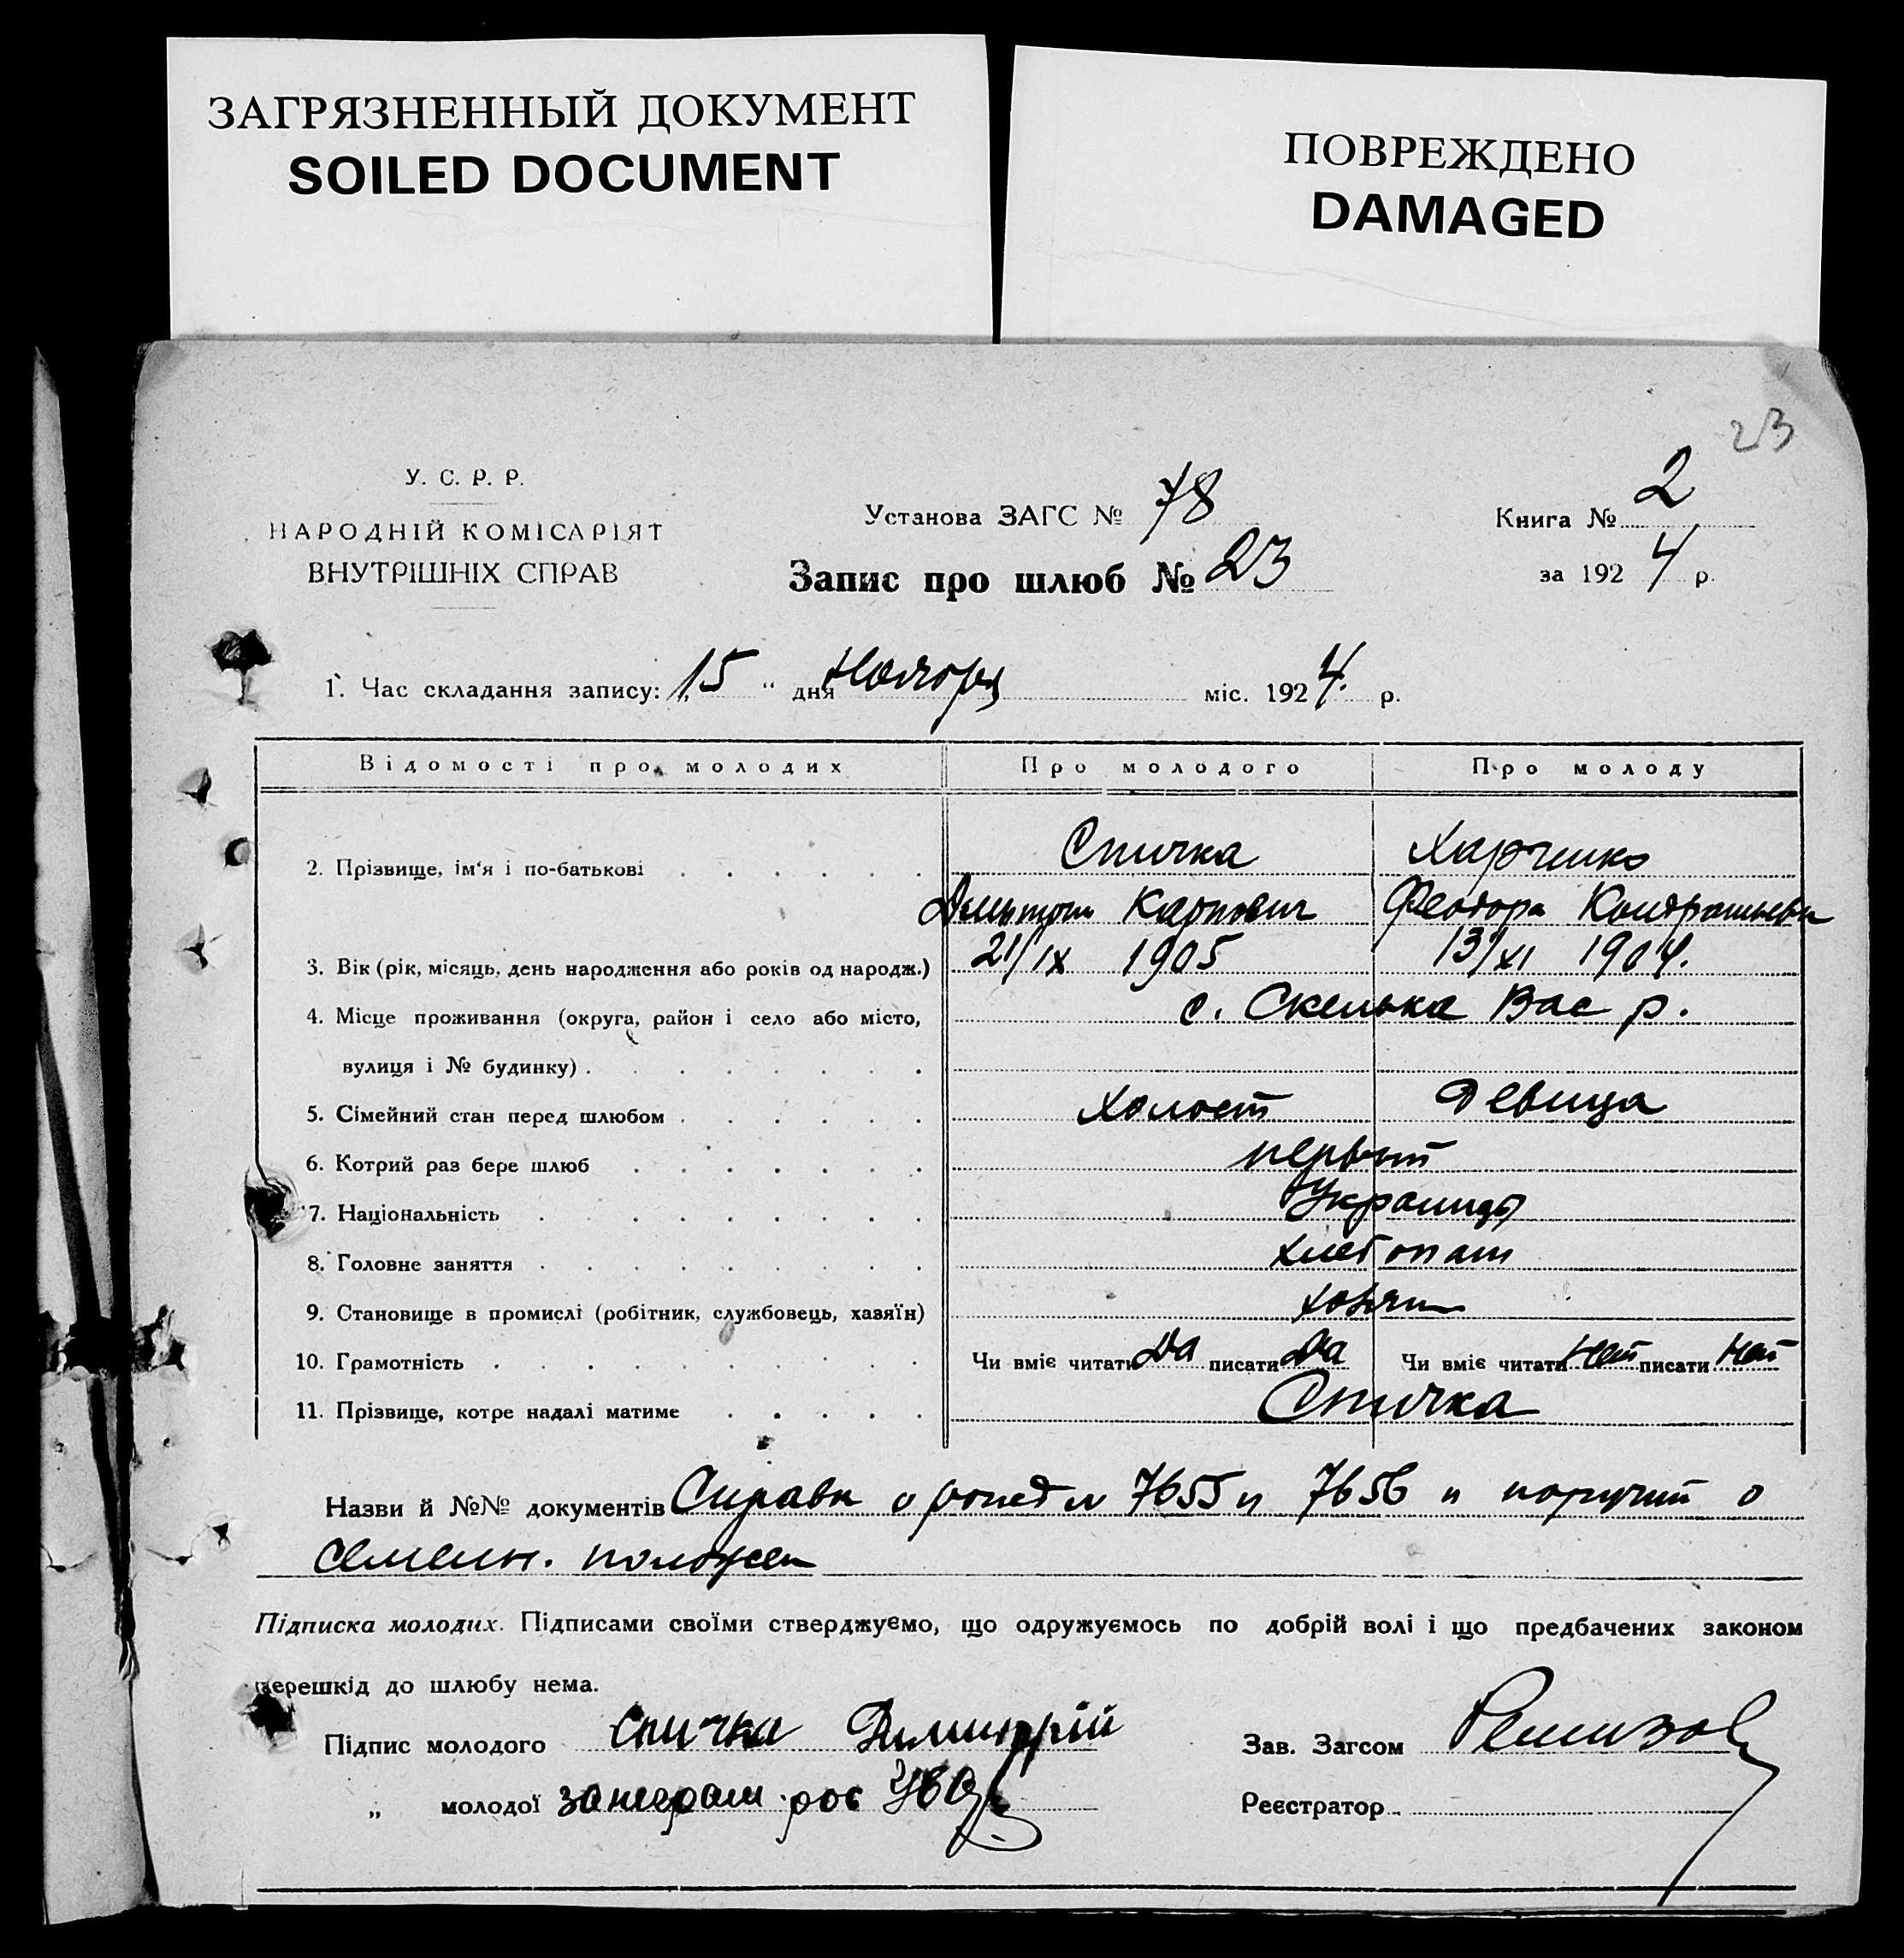 ЗАГРЯЗНЕННЫЙ ДОКУМЕНТ
SOILED DOCUMENT
ПОВРЕЖДЕНО
DAMAGED
23
У. С. Р. Р.
НАРОДНІЙ КОМІСАРІЯТ
ВНУТРІШНІХ СПРАВ
Установа ЗАГС № 78
Запис про шлюб № 23
Книга № 2
за 192 4 р.
1. Час складання запису: „15“ дня Ноября міс. 1924. р.
Відомості про молодих Про молодого Про молоду
2. Прізвище, ім'я і по-батькові Спичка Харченко
Карпович Феодора Кондратьевн
3. Вік (рік, місяць, день народження або років од народж.) 21/IX 1905 13/XI 1904.
4. Місце проживання (округа, район і село або місто, с. Скелька Вас р.
вулиця і № будинку)
5. Сімейний стан перед шлюбом Холост Девица
6. Котрий раз бере шлюб первый
7. Національність Украинцы
8. Головне заняття хлебопаш
9. Становище в промислі (робітник, службовець, хазяїн) хозяин
10. Грамотність Чи вміє читати Да писати Да Чи вміє читати Нет писати Нет
11. Прізвище, котре надалі матиме Спичка
Назви й №№ документів Справки о рожд № 7655 и 7656 и о
семейн. положен
Підписка молодих. Підписами своїми стверджуємо, що одружуємось по добрій волі і що предбачених законом
перешкід до шлюбу нема.
Підпис молодого Спичка Димитрій
Зав. Загсом Ремизов
„ молодої
Реєстратор